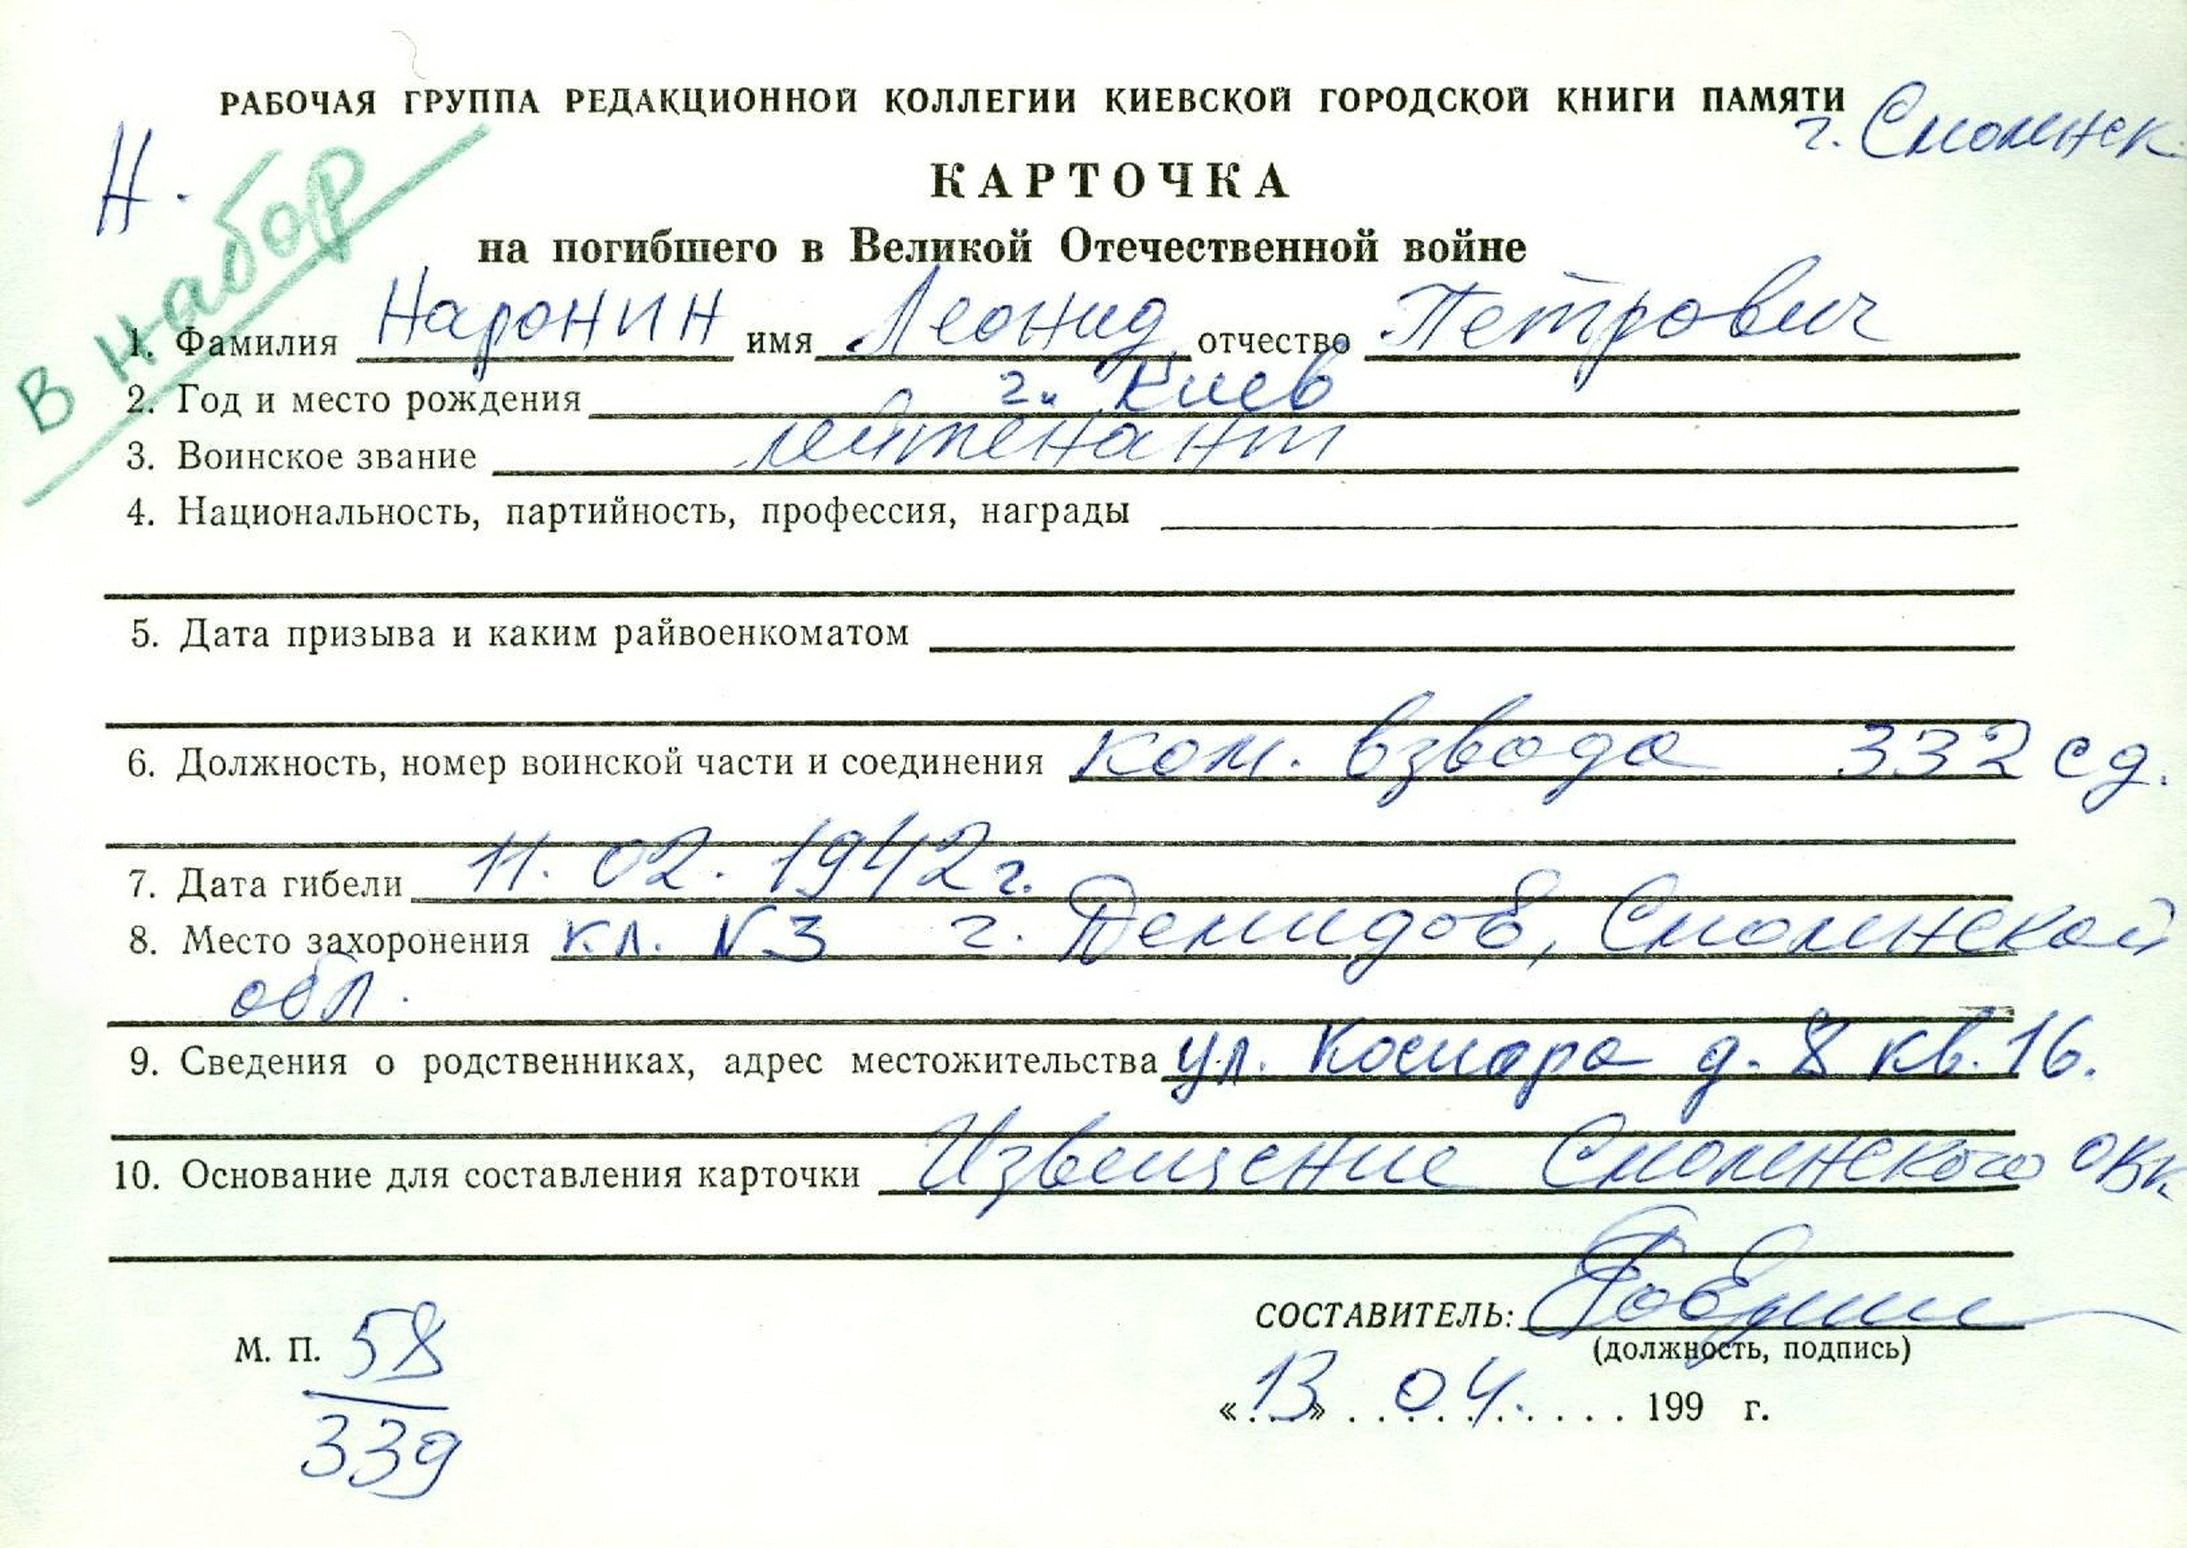 РАБОЧАЯ ГРУППА РЕДАКЦИОННОЙ КОЛЛЕГИИ КИЕВСКОЙ ГОРОДСКОЙ КНИГИ ПАМЯТИ
г. Смоленск
Н.
В набор
КАРТОЧКА
на погибшего в Великой Отечественной войне
1. Фамилия Наронин имя Леонид отчество Петрович
2. Год и место рождения г. Киев
3. Воинское звание лейтенант
4. Национальность, партийность, профессия, награды
5. Дата призыва и каким райвоенкоматом
6. Должность, номер воинской части и соединения ком. взвода 332 сд.
7. Дата гибели 11.02.1942 г.
8. Место захоронения кл. N3 г. Демидов, Смоленской
обл.
9. Сведения о родственниках, адрес местожительства ул. д. 8 кв. 16.
10. Основание для составления карточки Извещение Смоленского ОВК
СОСТАВИТЕЛЬ:
(должность, подпись)
М. П. 58
339
«13» 04. 199 г.